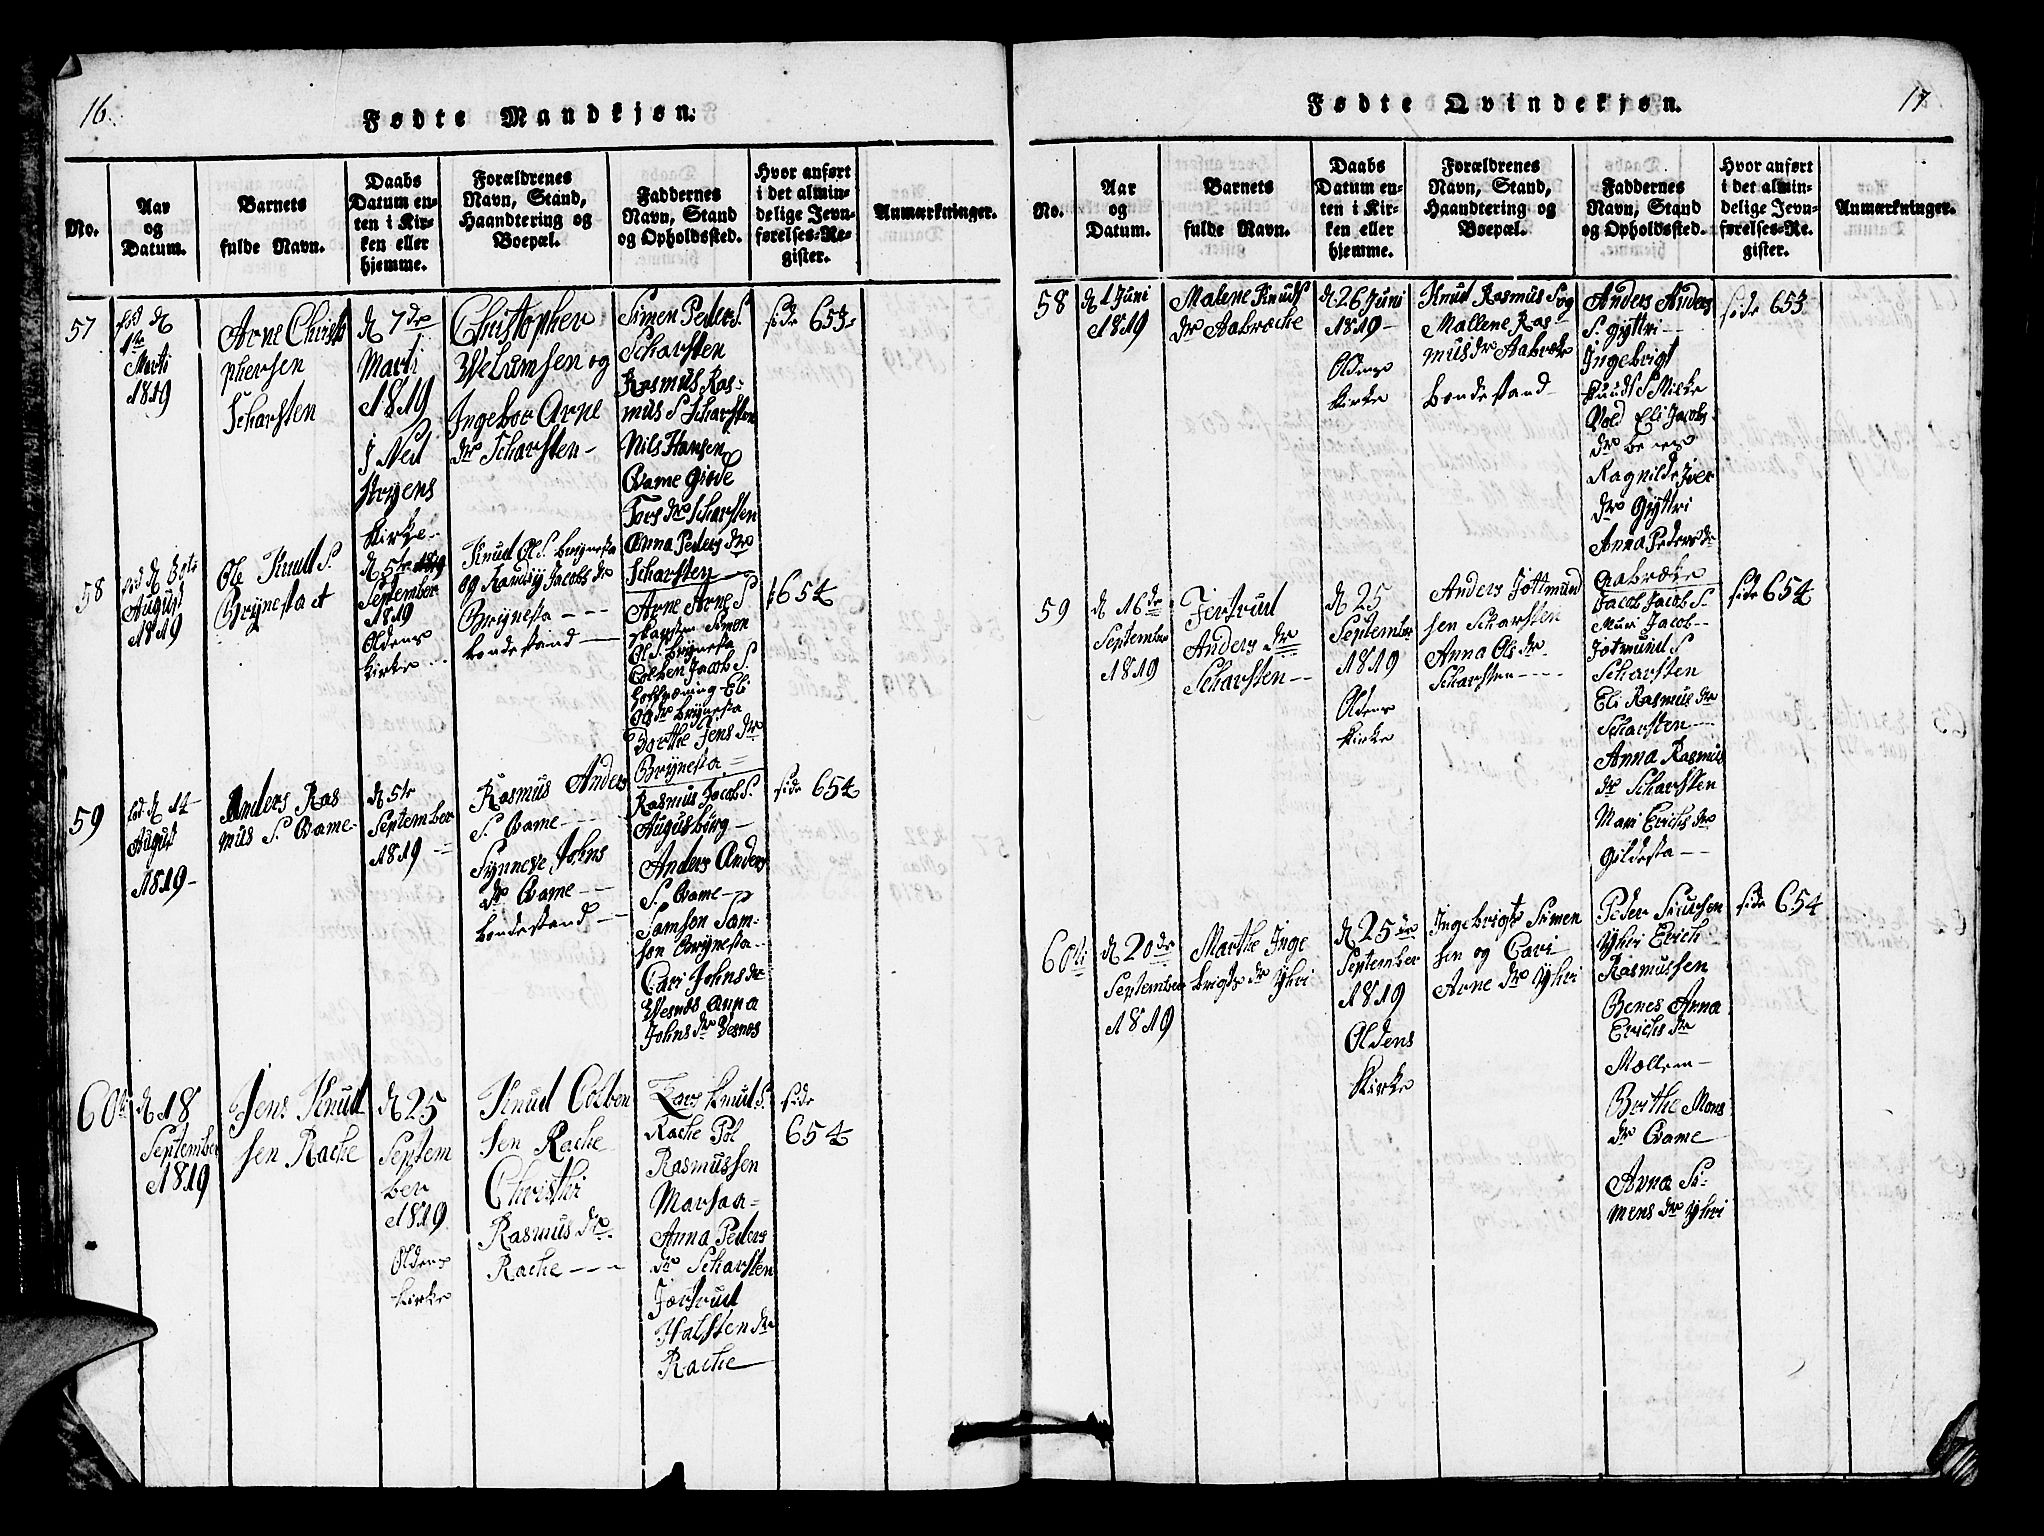 16.
Fødte Mandkjøn.
No.
Aar
og
Datum.
Barnets
fulde Navn.
Daabs
Datum en-
ten i Kir-
ken eller
hjemme.
Forældrenes
Navn, Stand,
Haandtering og
Boepæl.
Faddernes
Navn, Stand
og Opholdssted.
Hvor anført
i det almin-
delige Jevn-
førelses-Re-
gister.
Anmærkninger.
57
fød d
1te
Marti
1819
Arne Christo
phersen
Scharsten
d 7de
Marti
1819
i Ned
stryens
Kirke
Christopher
Velumsen og
Ingebor Arne
dr Scharsten-
Simen Peders S.
Scharsten
Rasmus Ras-
mus S Scharsten
Nils Hansen
Qvame
Lars dr Scharsten
Anna Peders dr
Scharsten
side 653
58
August
1819
Ole Knud S.
Brynesta
d 5te 1819
September
1819
Oldens
Kirke
Knud Ol S. Brynesta
og Randiy Jacobs dr
Brynesta
bondestand
Arne Arne S
Skarsten Simon
Ol S. Brynesta
Colben Jacob S.
Eli
Ols dr Brynesta
Borthe Jens dr
Brynesta
654
59
fød d 14
August
1819
Anders Ras
mus S. Qvame
d 5te
September
1819
Rasmus Anders
S. Qvame
Synneve Johns
dr Qvame
bondestand
Rasmus Jacob S.
Augusburg
Anders Anders
S. Qvame
Samson Sam-
son Brynesta
Cari Johns dr
Vesnes Anna
Johns dr Vesnes
side 654
60
d 18
September
1819
Jens Knud
sen Rache
d 25
Septem
ber
1819
Oldens
Kirke
Knud Colben
sen Rache
Christhi
Rasmus dr
Rache
Lars Knud S.
Rache Pol
Rasmussen
Marsaa-
Anna Peders
dr Scharsten
Jortrud
Halsten dr
Rache
side
654
17
Fødte Qvindekjøn.
No.
Aar
og
Datum.
Barnets
fulde Navn.
Daabs
Datum en-
ten i Kir-
ken eller
hjemme.
Forældrenes
Navn, Stand,
Haandtering og
Boepæl.
Faddernes
Navn, Stand
og Opholdssted.
Hvor anført
i det almin-
delige Jevn-
førelses-Re-
gister.
Anmærkninger.
58
d 1 Juni
1819
Malene Knuds
dr Aabrecke
d 26 Juni
1819
Oldens
Kirke
Knud Rasmus S og
Mallene Ras-
mus dr Aabreke
bondestand
Anders Anders
S. Gyttri
Ingebrigt
Knuds S Micke
Vold Eli Jacobs
dr
Ragnilde Iver
dr Gyttri
Anna Peders dr
Aabreke
side 653
59
d 16de
September
1819
Jertrud
Anders dr
Scharsten
d 25
September
1819
Oldens
Kirke
Anders Jottmund
sen Scharsten
Anna Ols dr
Scharsten
Jacob Jacob S.
Muri Jacob
Jotmund S
Scharsten
Eli Rasmus dr
Scharsten
Anna Rasmus
dr Scharsten
Mari Erichs dr
Gildesta
side 654
60
d 20de
September
1819
Marthe Inge
brigts dr Ytri
d 25
September
1819
Oldens
Kirke
Ingebrigt Simen
sen og Cari
Arne dr Ytri
Peder
Ytri Erich
Rasmussen
Benes Anna
Erichs dr
Mellem
Berthe Mons
dr Qvame
Anna Si-
mens dr Ytri
side 654